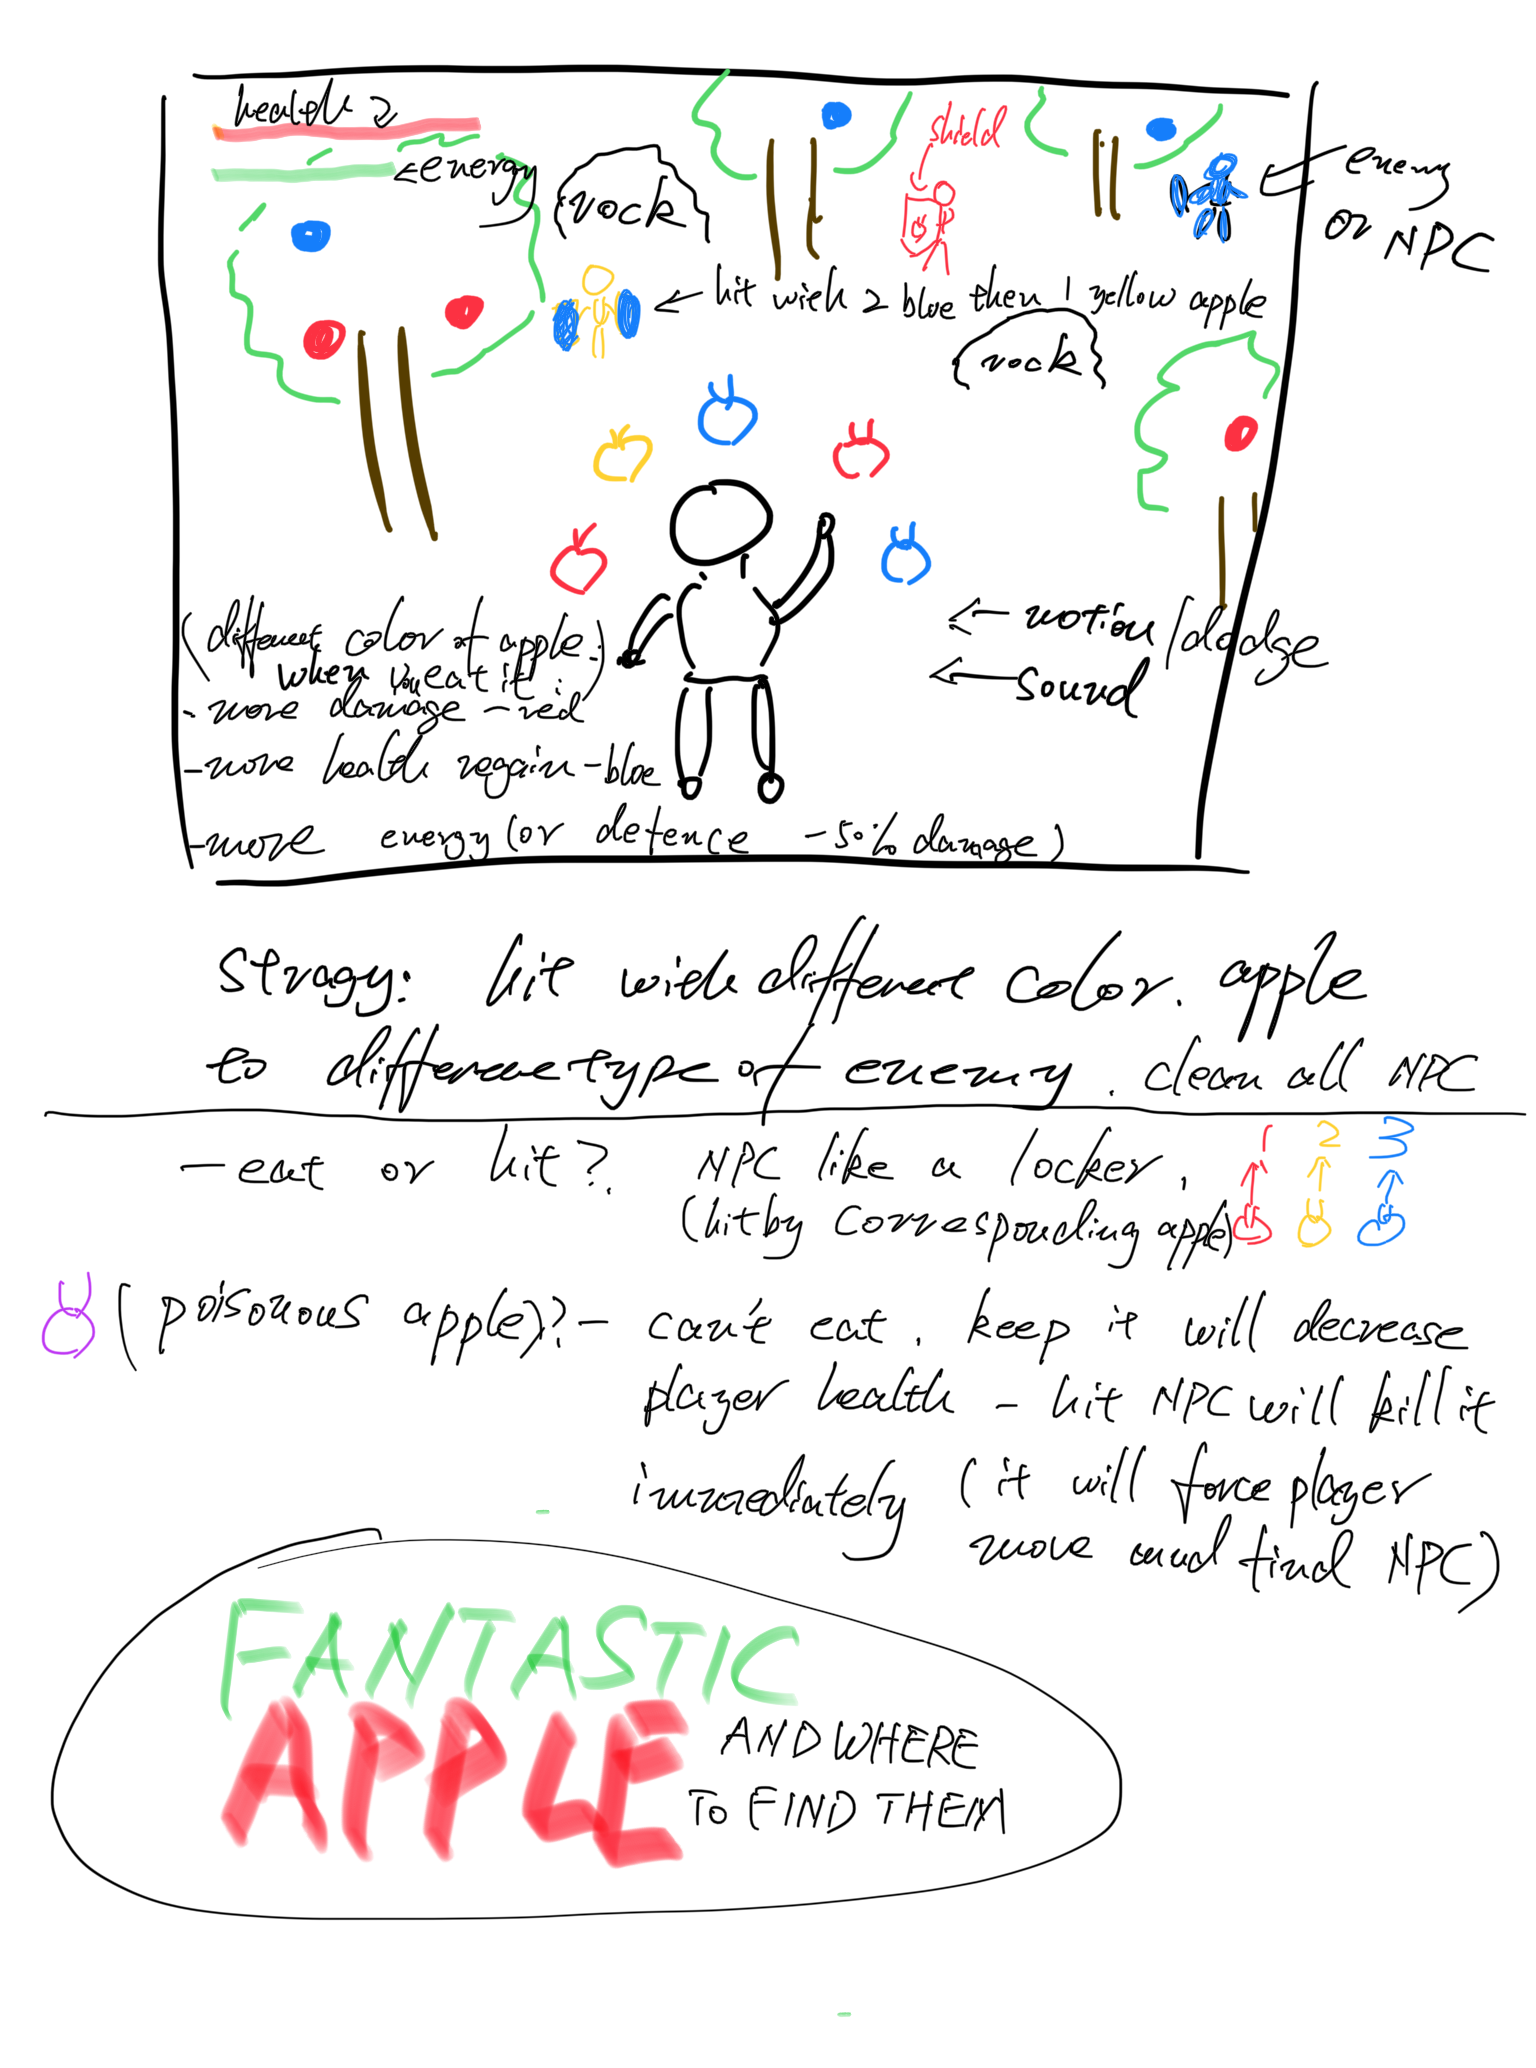 health
energy
rock
shield
enemy
or NPC
hit with 2 blue then 1 yellow apple
rock
(different color of apple:
when you eat it:)
- more damage - red
- more health regain - bloe
- more energy (or defence -50% damage)
motion/dodge
sound
Stragy: hit with different color. apple
to different type of enemy. clean all NPC
- eat or hit? NPC like a locker.
(hit by corresponding apple)
1 2 3
(poisonous apple)? - can't eat. keep it will decrease
player health - hit NPC will kill it
immediately (it will force player
move and find NPC)
FANTASTIC
APPLE AND WHERE
TO FIND THEM